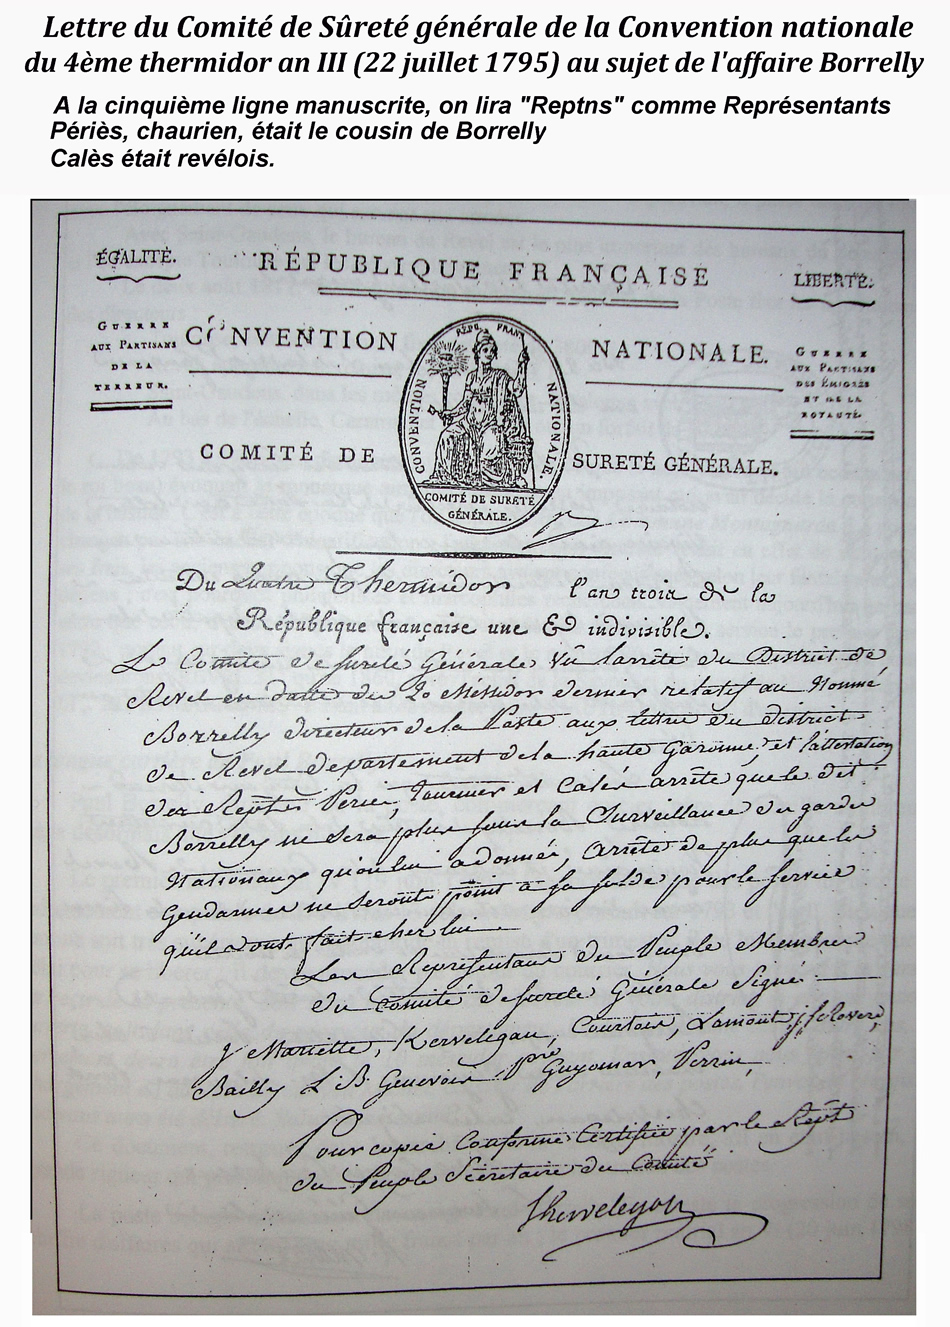 Lettre du Comité de Sûreté générale de la Convention nationale
du 4ème thermidor an III (22 juillet 1795) au sujet de l'affaire Borrelly
A la cinquième ligne manuscrite, on lira "Reptns" comme Représentants
Périès, chaurien, était le cousin de Borrelly
Calès était revélois.
ÉGALITÉ.
RÉPUBLIQUE FRANÇAISE
LIBERTÉ.
GUERRE
AUX PARTISANS
DE LA
TERREUR.
CONVENTION
NATIONALE.
GUERRE
AUX PARTISANS
DES ÉMIGRÉS
ET DE LA
ROYAUTÉ.
RÉPU. FRANÇ
CONVENTION
NATIONALE.
COMITÉ DE SURETÉ
GÉNÉRALE.
COMITÉ DE
SURETÉ GÉNÉRALE.
Du Quatre Thermidor l'an trois de la
République française une & indivisible.
Le Comité de sureté Générale Vû l'arrêté du District de
Revel en datte du 20 Messidor dernier relatif au Nommé
Borrelly directeur de la Poste aux lettre du district
de Revel departement de la haute Garonne et l'attestation
des Reptns Periès, Tournier et Calès arrête que le dit
Borrelly ne sera plus sous la Surveillance du gardes
Nationaux qu'on lui a donnée, Arrête de plus que les
Gendarmes ne seront point à sa solde pour le service
qu'il ont fait chez lui
Les Représentans du Peuple Membres
du Comité de sureté Générale Signé
Mariette, Kervelegan, Courtois, Lamont,
Bailly L B Genevois Pre Guyomar, Perrin,
Pour copie Conforme Certifiée par le Rept
du Peuple Secrétaire du Comité
Kervelegan